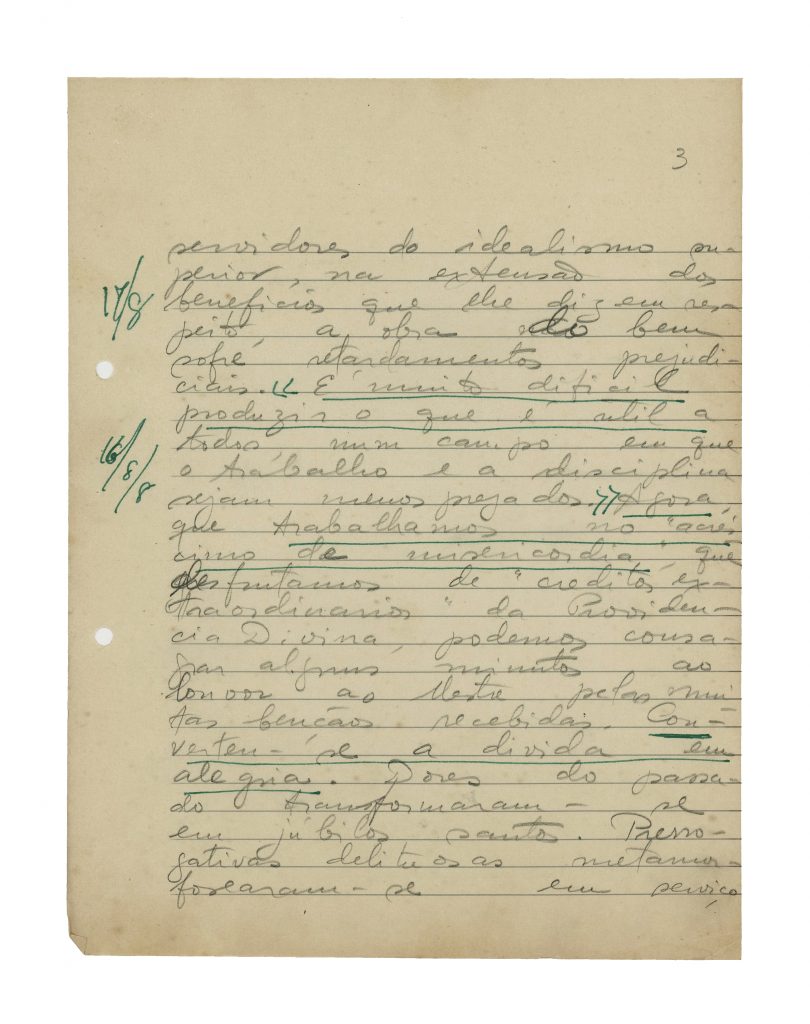 3
servidores do idealismo su-
perior, na extensão dos
17/8
beneficios que lhe dizem res-
peito, a obra do bem
sofre retardamentos prejudi-
ciais. "É muito dificil
produzir o que é util a
16/8/8
todos num campo em que
o trabalho e a disciplina
sejam menosprezados." Agora,
que trabalhamos no "acrés-
cimo de misericordia", que
desfrutamos de "creditos ex-
traordinarios" da Providen-
cia Divina, podemos consa-
grar alguns minutos ao
louvor ao Mestre pelas mui
tas bençãos recebidas. Con-
verteu-se a divida em
alegria. Dores do passa-
do transformaram-se
em júbilos santos. Prerro-
gativas delituosas metamor-
fosearam-se em serviço